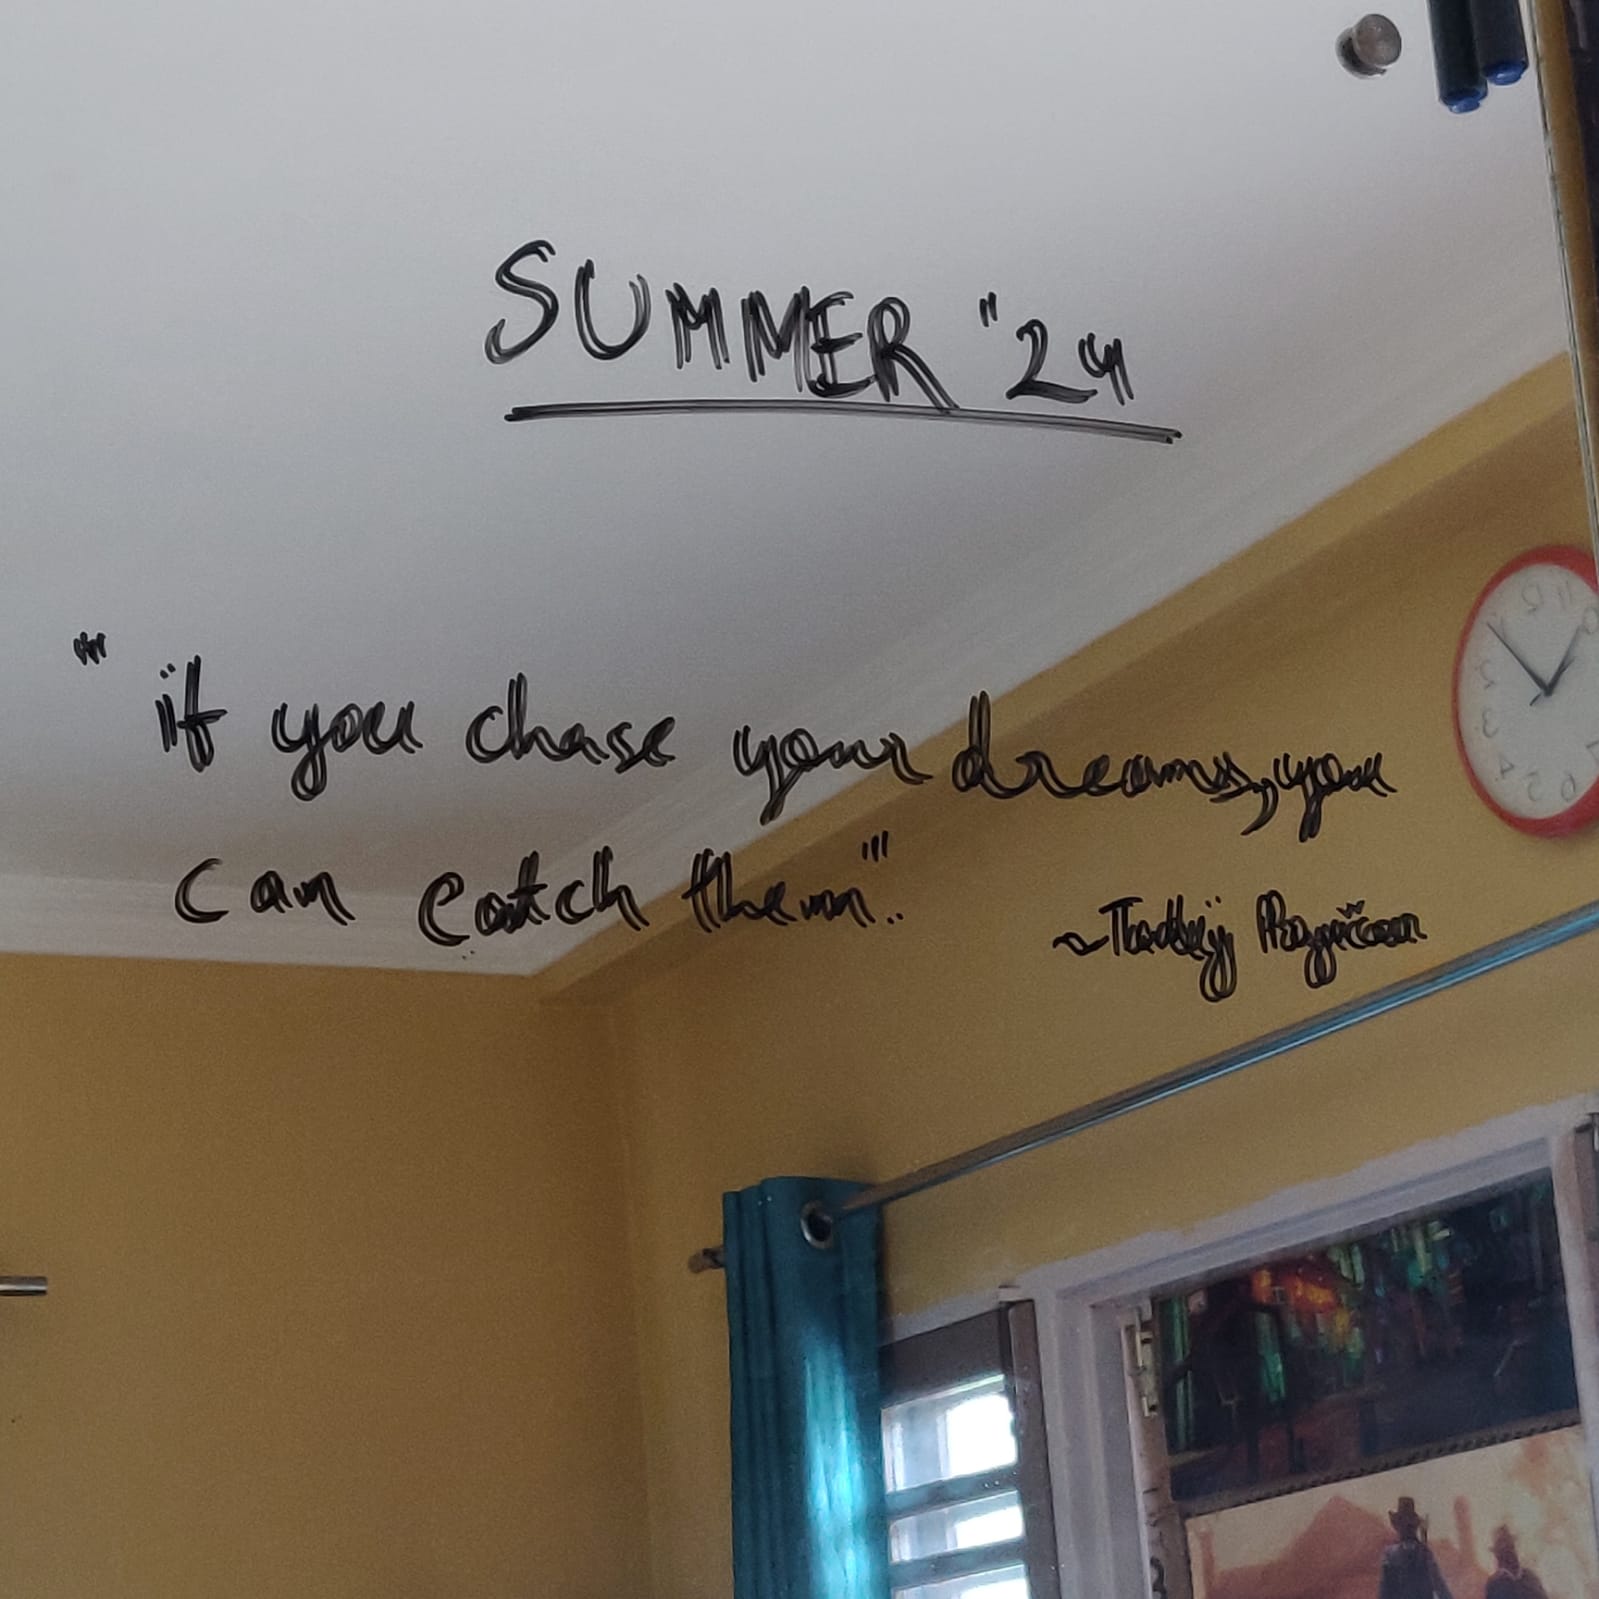 SUMMER "24
"if you chase your dreams, you
can catch them"..
~Tadej Pogačar